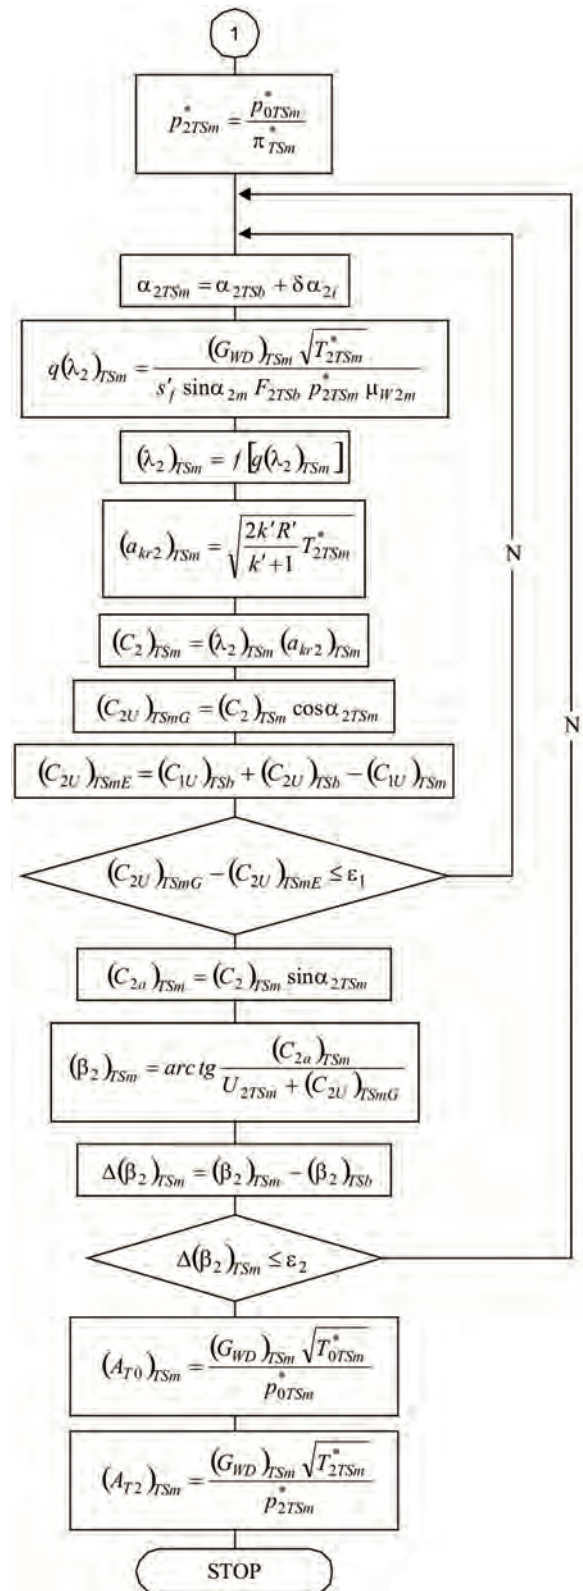 1
p*_{2TSm} = p*_{0TSm} / π*_{TSm}
α_{2TSm} = α_{2TSb} + δα_{2i}
q(λ_2)_{TSm} = (G_{WD})_{TSm} √T*_{2TSm} / s'_f sinα_{2m} F_{2TSb} p*_{2TSm} μ_{W2m}
(λ_2)_{TSm} = f[q(λ_2)_{TSm}]
(a_{kr2})_{TSm} = √(2k'R' / k'+1 T*_{2TSm})
N
(C_2)_{TSm} = (λ_2)_{TSm} (a_{kr2})_{TSm}
(C_{2U})_{TSmG} = (C_2)_{TSm} cosα_{2TSm}
N
(C_{2U})_{TSmE} = (C_{1U})_{TSb} + (C_{2U})_{TSb} − (C_{1U})_{TSm}
(C_{2U})_{TSmG} − (C_{2U})_{TSmE} ≤ ε_1
(C_{2a})_{TSm} = (C_2)_{TSm} sinα_{2TSm}
(β_2)_{TSm} = arctg (C_{2a})_{TSm} / U_{2TSm} + (C_{2U})_{TSmG}
Δ(β_2)_{TSm} = (β_2)_{TSm} − (β_2)_{TSb}
Δ(β_2)_{TSm} ≤ ε_2
(A_{T0})_{TSm} = (G_{WD})_{TSm} √T*_{0TSm} / p*_{0TSm}
(A_{T2})_{TSm} = (G_{WD})_{TSm} √T*_{2TSm} / p*_{2TSm}
STOP